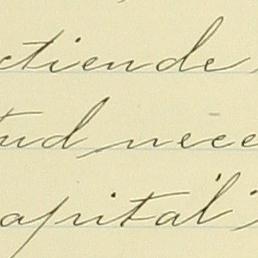 ctiende,
tud nece
apital"